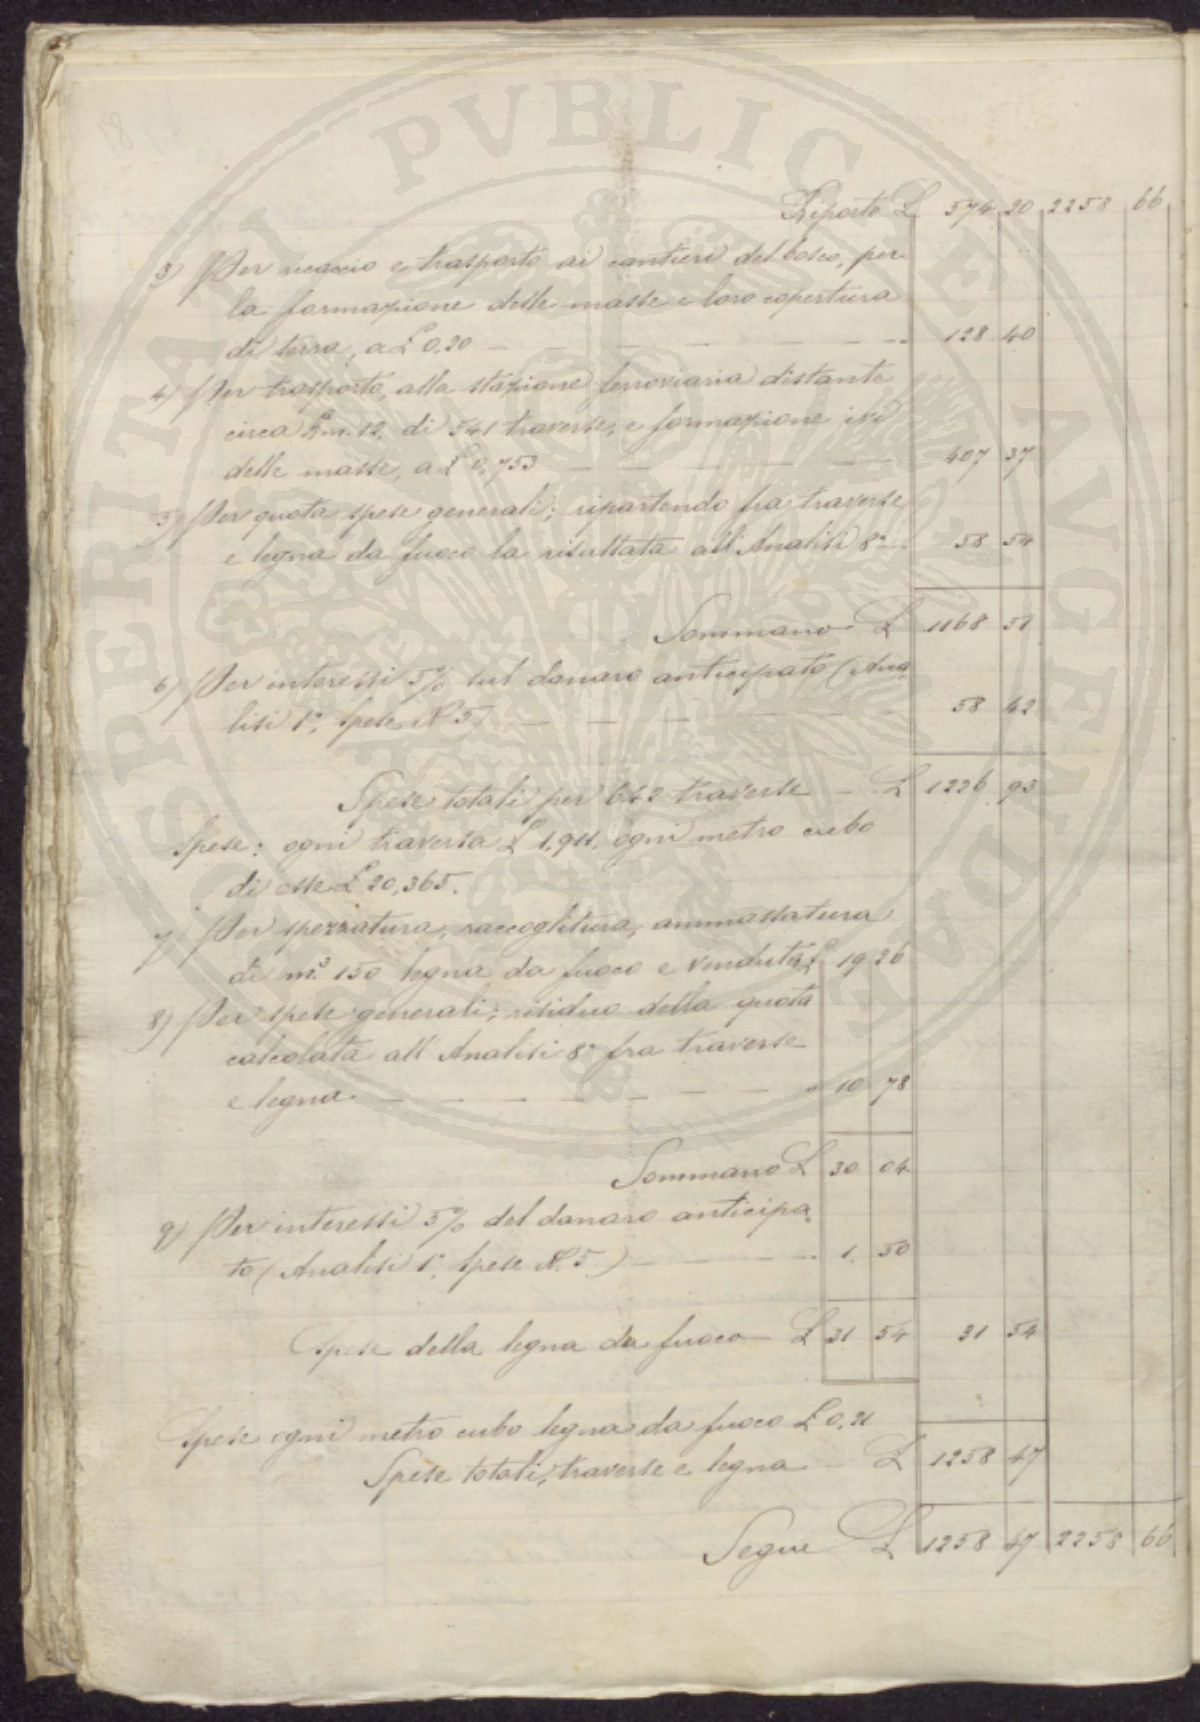 Riporto L 574 20 2258 66
3) Per ricaccio e trasporto ai cantieri del bosco, per
la formazione delle masse e loro copertura
di terra, a L 0.20 — — — — — — " 128 40
4) Per trasporto, alla stazione ferroviaria distante
circa Km. 12, di 541 traverse, e formazione ivi
delle masse, a L 0,753 — — — — — — 407 37
5) Per quota spese generali; ripartendo fra traverse
e legna da fuoco la risultata all'Analisi 8ª — 58 54
Sommano L 1168 51
6) Per interessi 5% sul danaro anticipato (Ana-
lisi 1ª, spese N. 5) — — — — — — 58 42
Spese totali per 642 traverse — L 1226 93
Spese: ogni traversa L 1,911. ogni metro cubo
di esse L 20,365.
7) Per spezzatura, raccoglitura, ammassatura
di m³. 150 legna da fuoco e vendute L 19 26
8) Per spese generali; residuo della quota
calcolata all'Analisi 8ª fra traverse
e legna — — — — — — — " 10 78
Sommano L 30 04
9) Per interessi 5% del danaro anticipa-
to (Analisi 1ª, spese N. 5) — — — — " 1. 50
Spese della legna da fuoco L 31 54 31 54
Spese ogni metro cubo legna da fuoco L 0,21
Spese totali, traverse e legna — L 1258 47
Segue L 1258 47 2258 66
PROSPERITATI PUBLICAE AUGENDAE